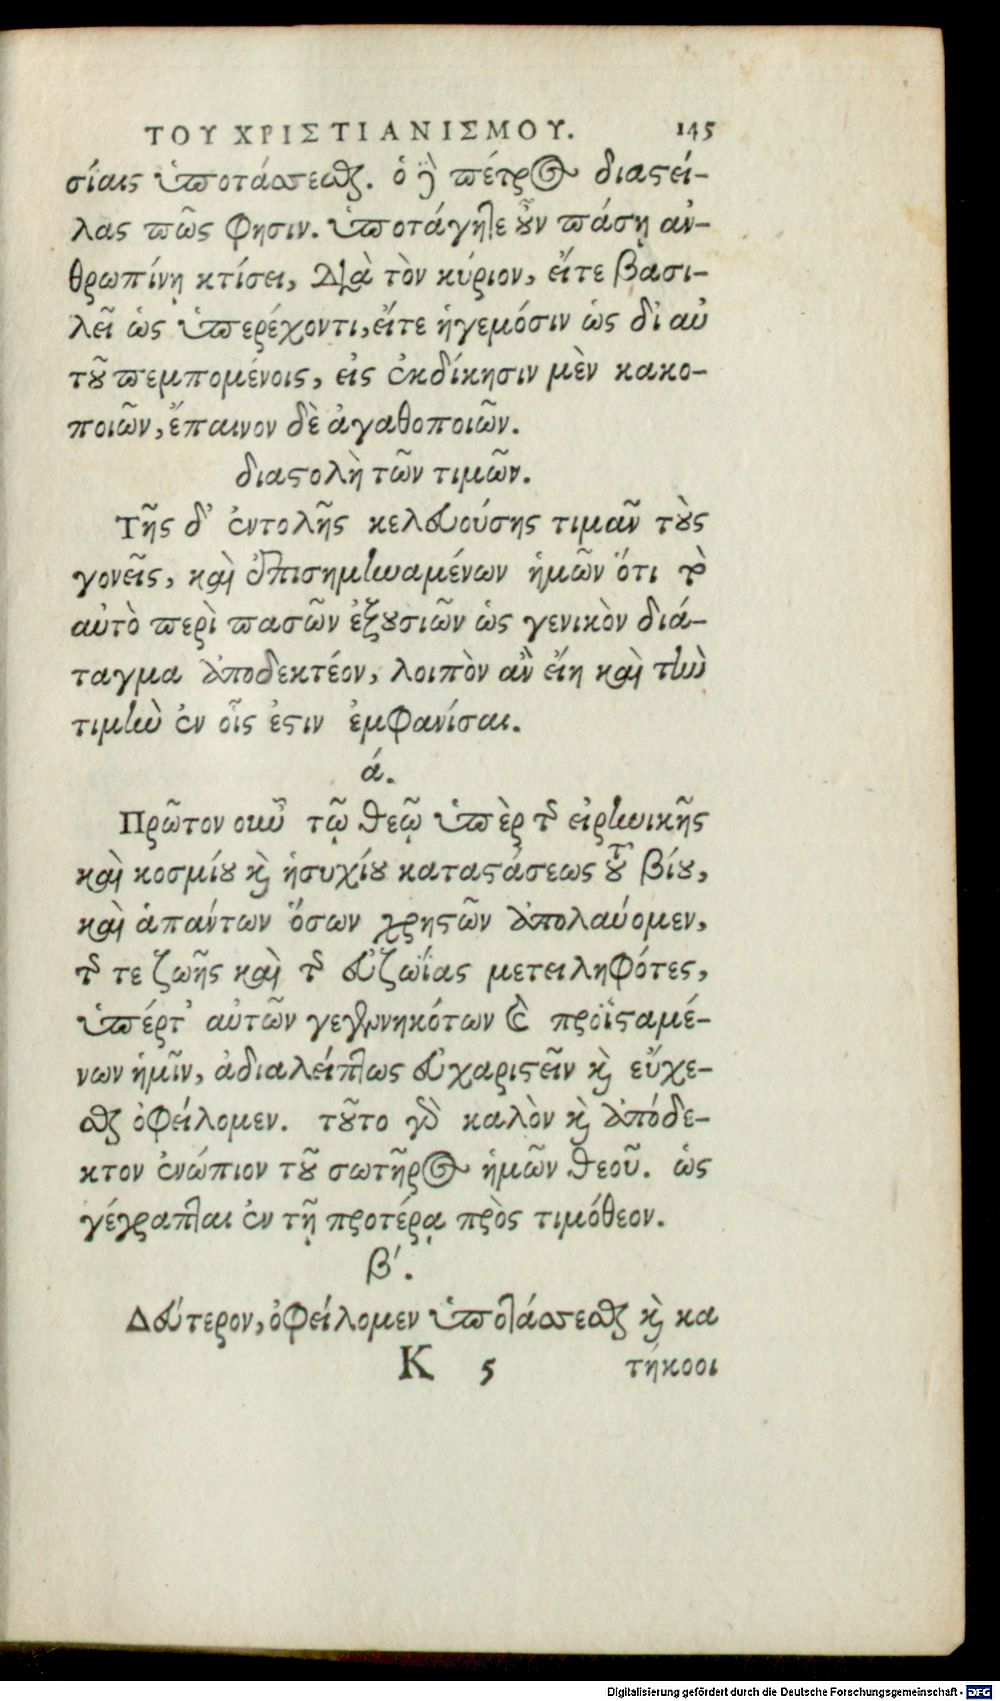 ΤΟΥ ΧΡΙΣΤΙΑΝΙΣΜΟΥ. 145
σίαις ὑποτάσσεσθαι. ὁ δὲ πέτρος διαστεί-
λας πῶς φησιν. ὑποτάγητε οὖν πάσῃ ἀν-
θρωπίνῃ κτίσει, διὰ τὸν κύριον, εἴτε βασι-
λεῖ ὡς ὑπερέχοντι, εἴτε ἡγεμόσιν ὡς δι' αὐ
τοῦ πεμπομένοις, εἰς ἐκδίκησιν μὲν κακο-
ποιῶν, ἔπαινον δὲ ἀγαθοποιῶν.
διαστολὴ τῶν τιμῶν.
Τῆς δ' ἐντολῆς κελευούσης τιμᾶν τοὺς
γονεῖς, καὶ ἐπισημηναμένων ἡμῶν ὅτι τὸ
αὐτὸ περὶ πασῶν ἐξουσιῶν ὡς γενικὸν διά-
ταγμα ἀποδεκτέον, λοιπὸν ἂν εἴη καὶ τὴν
τιμὴν ἐν οἷς ἐστιν ἐμφανίσαι.
ά.
Πρῶτον οὖν τῷ θεῷ ὑπὲρ τῆς εἰρηνικῆς
καὶ κοσμίου καὶ ἡσυχίου καταστάσεως τοῦ βίου,
καὶ ἁπάντων ὅσων χρηστῶν ἀπολαύομεν,
τῆς τε ζωῆς καὶ τῆς εὐζωΐας μετειληφότες,
ὑπέρτ' αὐτῶν γεγεννηκότων καὶ προϊσταμέ-
νων ἡμῖν, ἀδιαλείπτως εὐχαριστεῖν καὶ εὔχε-
σθαι ὀφείλομεν. τοῦτο γὰρ καλὸν καὶ ἀπόδε-
κτον ἐνώπιον τοῦ σωτῆρος ἡμῶν θεοῦ. ὡς
γέγραπται ἐν τῇ προτέρᾳ πρὸς τιμόθεον.
β'.
Δεύτερον, ὀφείλομεν ὑποτάσσεσθαι καὶ κα
K 5 τήκοοι
Digitalisierung gefördert durch die Deutsche Forschungsgemeinschaft - DFG